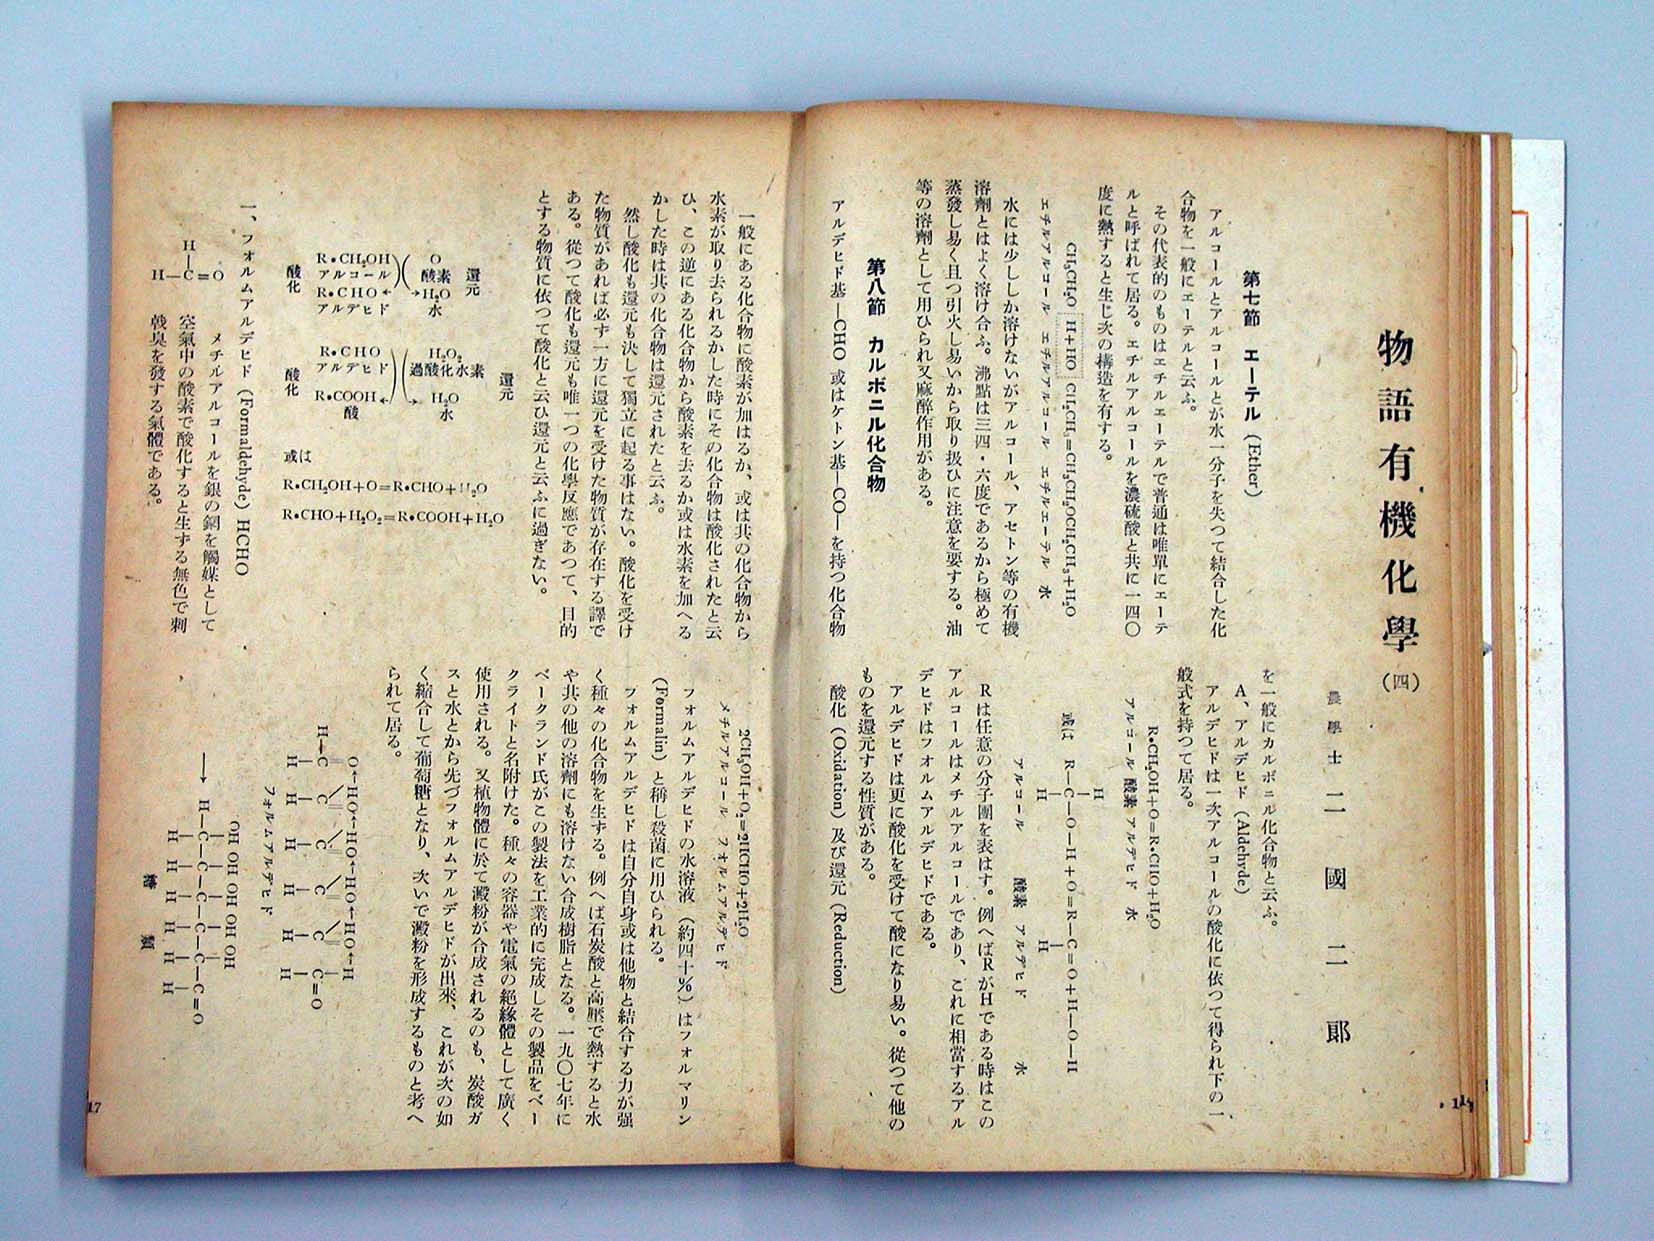 物語有機化學(四)
農學士 二國二郎
第七節 エーテル (Ether)
アルコールとアルコールとが水一分子を失つて結合した化
合物を一般にエーテルと云ふ。
その代表的のものはエチルエーテルで普通は唯單にエーテ
ルと呼ばれて居る。エチルアルコールを濃硫酸と共に一四〇
度に熱すると生じ次の構造を有する。
CH₃CH₂O H+HO CH₂CH₃=CH₃CH₂OCH₂CH₃+H₂O
エチルアルコール エチルアルコール エチルエーテル 水
水には少ししか溶けないがアルコール、アセトン等の有機
溶劑とはよく溶け合ふ。沸點は三四・六度であるから極めて
蒸發し易く且つ引火し易いから取り扱ひに注意を要する。油
等の溶劑として用ひられ又麻醉作用がある。
第八節 カルボニル化合物
アルデヒド基—CHO 或はケトン基—CO—を持つ化合物
を一般にカルボニル化合物と云ふ。
A、アルデヒド (Aldehyde)
アルデヒドは一次アルコールの酸化に依つて得られ下の一
般式を持つて居る。
R•CH₂OH+O=R•CHO+H₂O
アルコール 酸素 アルデヒド 水
或は
H
R—C—O—H+O=R—C=O+H—O—H
H H
アルコール 酸素 アルデヒド 水
Rは任意の分子團を表はす。例へばRがHである時はこの
アルコールはメチルアルコールであり、これに相當するアル
デヒドはフオルムアルデヒドである。
アルデヒドは更に酸化を受けて酸になり易い。從つて他の
ものを還元する性質がある。
酸化 (Oxidation) 及び還元 (Reduction)
一般にある化合物に酸素が加はるか、或は其の化合物から
水素が取り去られるかした時にその化合物は酸化されたと云
ひ、この逆にある化合物から酸素を去るか或は水素を加へる
かした時は其の化合物は還元されたと云ふ。
然し酸化も還元も決して獨立に起る事はない。酸化を受け
た物質があれば必ず一方に還元を受けた物質が存在する譯で
ある。從つて酸化も還元も唯一つの化學反應であつて、目的
とする物質に依つて酸化と云ひ還元と云ふに過ぎない。
還元
R•CH₂OH O
アルコール 酸素
R•CHO H₂O
アルデヒド 水
酸化
還元
R•CHO H₂O₂
アルデヒド 過酸化水素
R•COOH H₂O
酸 水
酸化
或は
R•CH₂OH+O=R•CHO+H₂O
R•CHO+H₂O₂=R•COOH+H₂O
一、フォルムアルデヒド (Formaldehyde) HCHO
H
H—C=O
メチルアルコールを銀の網を觸媒として
空氣中の酸素で酸化すると生ずる無色で刺
戟臭を發する氣體である。
2CH₃OH+O₂=2HCHO+2H₂O
メチルアルコール フォルムアルデヒド
フォルムアルデヒドの水溶液 (約四十%) はフォルマリン
(Formalin) と稱し殺菌に用ひられる。
フォルムアルデヒドは自分自身或は他物と結合する力が强
く種々の化合物を生ずる。例へば石炭酸と高壓で熱すると水
や其の他の溶劑にも溶けない合成樹脂となる。一九〇七年に
ベークランド氏がこの製法を工業的に完成しその製品をベー
クライトと名附けた。種々の容器や電氣の絶緣體として廣く
使用される。又植物體に於て澱粉が合成されるのも、炭酸ガ
スと水とから先づフォルムアルデヒドが出來、これが次の如
く縮合して葡萄糖となり、次いで澱粉を形成するものと考へ
られて居る。
O←HO←HO←HO←HO←H
H—C C C C C C=O
H H H H H H
フォルムアルデヒド
OH OH OH OH OH
→ H—C—C—C—C—C—C=O
H H H H H H
糖類
17